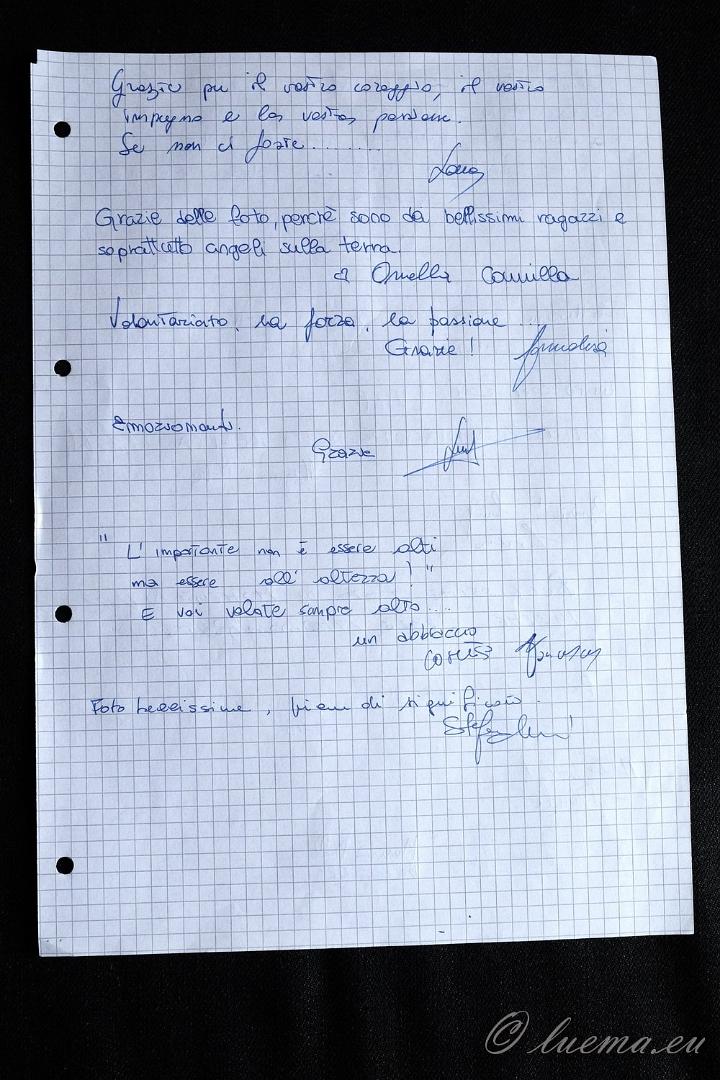 Grazie per il vostro coraggio, il vostro
impegno e la vostra passione.
Se non ci foste........
Grazie delle foto, perchè sono da bellissimi ragazzi e
soprattutto angeli sulla terra.
Ornella Camilla
Volontariato, la forza, la passione...
Grazie!
Emozionante.
Grazie
" L'importante non è essere alti
ma essere all'altezza!"
E voi volate sempre alto....
un abbraccio
Foto bellissime, piene di significato.
© luema.eu